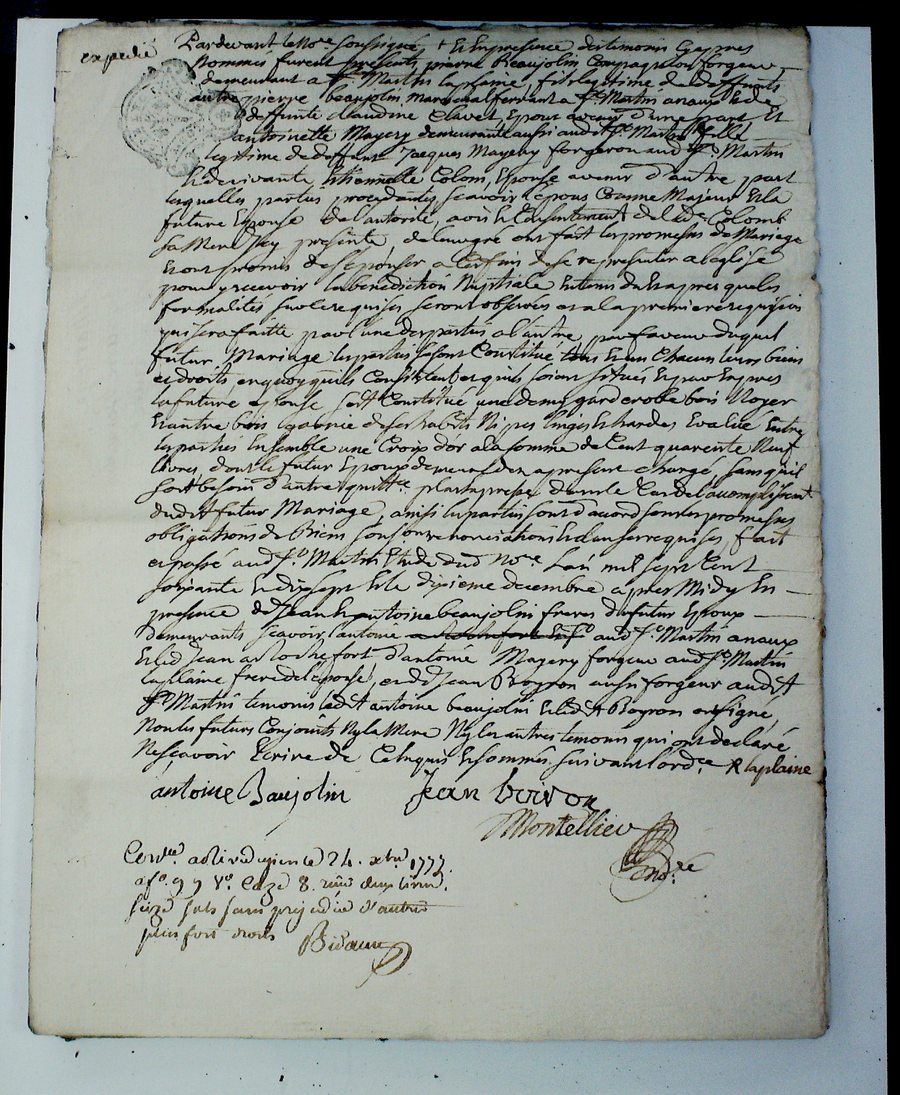 expedié
Pardevant le Nore soussigné, + et En presence des temoins Cy apres
Nommés furent presents pierre Beaujolin Compagnon forgeur
demeurant a St. Martin laplaine, fils legitime de
autre pierre beaujolin, marechal ferrant a St. Martin anaux et de
deffunte claudine Clavel, Epoux avenir d'une part Et
antoinette Mayery demeurante aussi aud. St. Martin fille
legitime de deffunt Jacques Mayery forgeron aud. St. Martin
et de vivante Etiennette Colom, Epouse avenir d'autre part
lesquelles parties procedantes scavoir lepoux Comme Majeur Et la
future Epouse de l'autorité, avis et Consentement de lad. Colomb
sa Mere Icy presente, de leur gré ont fait les promesses de Mariage
Et ont promis de s'epouser a l'effet de se representer a l'eglise
pour y recevoir la benediction Nuptiale apres que les
formalités sur ce requises seront observées et a la premiere requisition
qui sera faitte par l'une des parties a l'autre, par faveur duquel
futur Mariage les parties se sont Constitué Chacun leurs biens
et droits en quoy qu'ils Consistent et qu'ils soient situés Et par Expres
la future epouse s'est Constitué une demy garderobe bois Noyer
Et autre bois garnie de ses habits Nipes linges et hardes Evalué Entre
les parties Ensemble une Croix d'or a la somme de Cent quarente Neuf
livres, dont le futur Epoux demeure des apresent chargé sans qu'il
soit besoin d'autre quittce. plus expresse dans le Cas de l'acomplissement
dudit futur Mariage, ainsi les parties sont d'acord sous les promesses
obligations de Biens soumissions renonciations et clauses requises fait
et passé aud. St. Martin Etude dud. Nore. L'an mil sept Cent
soixante Et dix sept Et le dixieme decembre apres Midy En
presence de Jean et antoine beaujolin freres du futur Epoux
demeurants scavoir l'antoine aud. St. Martin anaux
Et led. Jean a Rochefort d'antoine Mayery forgeur aud. St. Martin
laplaine frere de l'epouse, et de Jean Boyron aussi forgeur audit
St. Martin temoins led. antoine beaujolin Et led. Boyron ont signé,
Non les futurs Conjoints Ny la Mere Ny les autres temoins qui ont declaré
Ne scavoir Ecrire de Ce Enquis Et sommés suivant l'ordce. + laplaine
antoine Baujolin Jean boiron
Montellier
Conlle. a Rivedegier le 24. xbre 1777.
a fo. 99 Vo. Caze 8. reçu
seize sols sans prejudice d'autres
plus fort droits